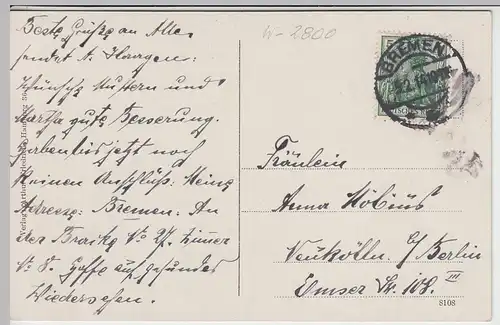 Beste Grüße an Alle
sendet A. Haagen.
Wünsche Muttern und
Martha gute Besserung.
Haben bis jetzt noch
keinen Anschluß. Meine
Adresse: Bremen. An
der Braike No 27. Zimmer
No 8. Hoffe auf gesundes
Wiedersehen.
W-2800
BREMEN
Fräulein
Anna Möbius
Neukölln b/ Berlin
Emser Str. 108. III
8108